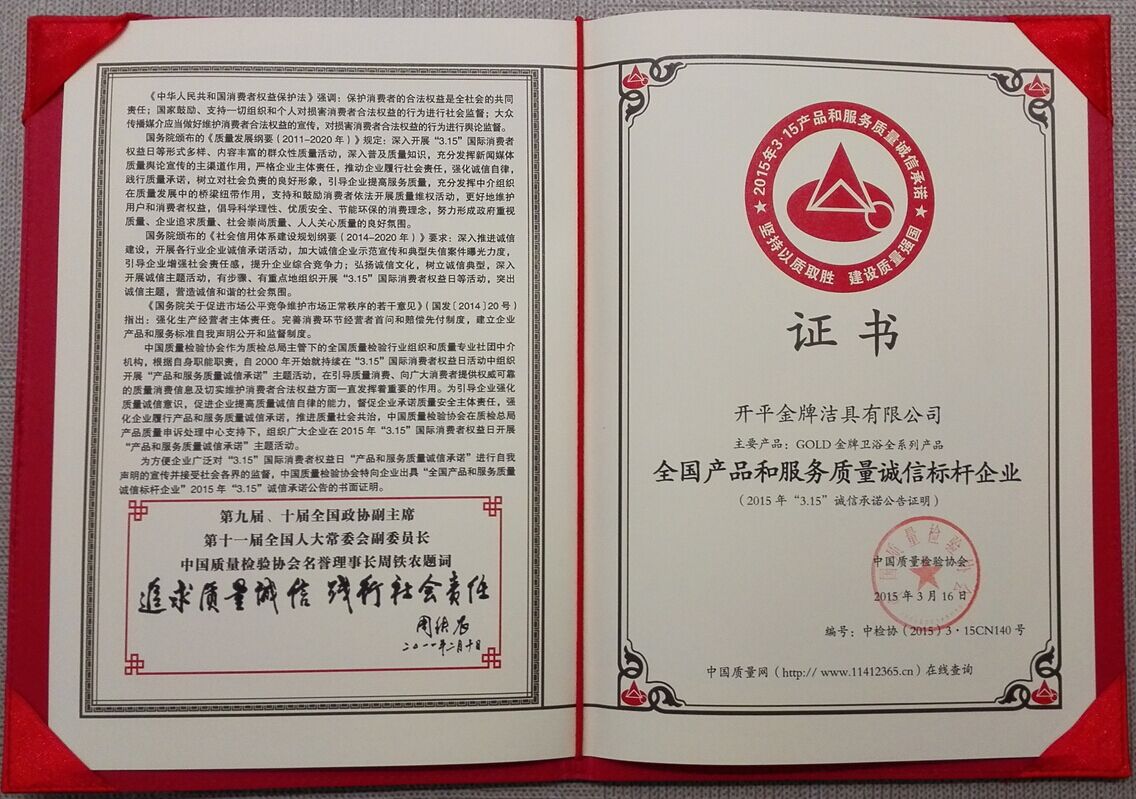 《中华人民共和国消费者权益保护法》强调：保护消费者的合法权益是全社会的共同
责任；国家鼓励、支持一切组织和个人对损害消费者合法权益的行为进行社会监督；大众
传播媒介应当做好维护消费者合法权益的宣传，对损害消费者合法权益的行为进行舆论监督。
国务院颁布的《质量发展纲要（2011-2020年）》规定：深入开展“3.15”国际消费者
权益日等形式多样、内容丰富的群众性质量活动，深入普及质量知识，充分发挥新闻媒体
质量舆论宣传的主渠道作用，严格企业主体责任，推动企业履行社会责任，强化诚信自律，
践行质量承诺，树立对社会负责的良好形象，引导企业提高服务质量，充分发挥中介组织
在质量发展中的桥梁纽带作用，支持和鼓励消费者依法开展质量维权活动，更好地维护
用户和消费者权益，倡导科学理性、优质安全、节能环保的消费理念，努力形成政府重视
质量、企业追求质量、社会崇尚质量、人人关心质量的良好氛围。
国务院颁布的《社会信用体系建设规划纲要（2014-2020年）》要求：深入推进诚信
建设，开展各行业企业诚信承诺活动，加大诚信企业示范宣传和典型失信案件曝光力度，
引导企业增强社会责任感，提升企业综合竞争力；弘扬诚信文化，树立诚信典型，深入
开展诚信主题活动，有步骤、有重点地组织开展“3.15”国际消费者权益日等活动，突出
诚信主题，营造诚信和谐的社会氛围。
《国务院关于促进市场公平竞争维护市场正常秩序的若干意见》（国发〔2014〕20号）
指出：强化生产经营者主体责任。完善消费环节经营者首问和赔偿先付制度，建立企业
产品和服务标准自我声明公开和监督制度。
中国质量检验协会作为质检总局主管下的全国质量检验行业组织和质量专业社团中介
机构，根据自身职能职责，自2000年开始就持续在“3.15”国际消费者权益日活动中组织
开展“产品和服务质量诚信承诺”主题活动，在引导质量消费、向广大消费者提供权威可靠
的质量消费信息及切实维护消费者合法权益方面一直发挥着重要的作用。为引导企业强化
质量诚信意识，促进企业提高质量诚信自律的能力，督促企业承诺质量安全主体责任，强
化企业履行产品和服务质量诚信承诺，推进质量社会共治，中国质量检验协会在质检总局
产品质量申诉处理中心支持下，组织广大企业在2015年“3.15”国际消费者权益日开展
“产品和服务质量诚信承诺”主题活动。
为方便企业广泛对“3.15”国际消费者权益日“产品和服务质量诚信承诺”进行自我
声明的宣传并接受社会各界的监督，中国质量检验协会特向企业出具“全国产品和服务质量
诚信标杆企业”2015年“3.15”诚信承诺公告的书面证明。
第九届、十届全国政协副主席
第十一届全国人大常委会副委员长
中国质量检验协会名誉理事长周铁农题词
追求质量诚信 践行社会责任
周铁农
二〇一一年二月十日
2015年3·15产品和服务质量诚信承诺
★ ★
坚持以质取胜 建设质量强国
证书
开平金牌洁具有限公司
主要产品：GOLD 金牌卫浴全系列产品
全国产品和服务质量诚信标杆企业
（2015年“3.15”诚信承诺公告证明）
中国质量检验协会
中国质量检验协会
2015年3月16日
编号：中检协（2015）3·15CN140号
中国质量网（http:// www.11412365.cn）在线查询